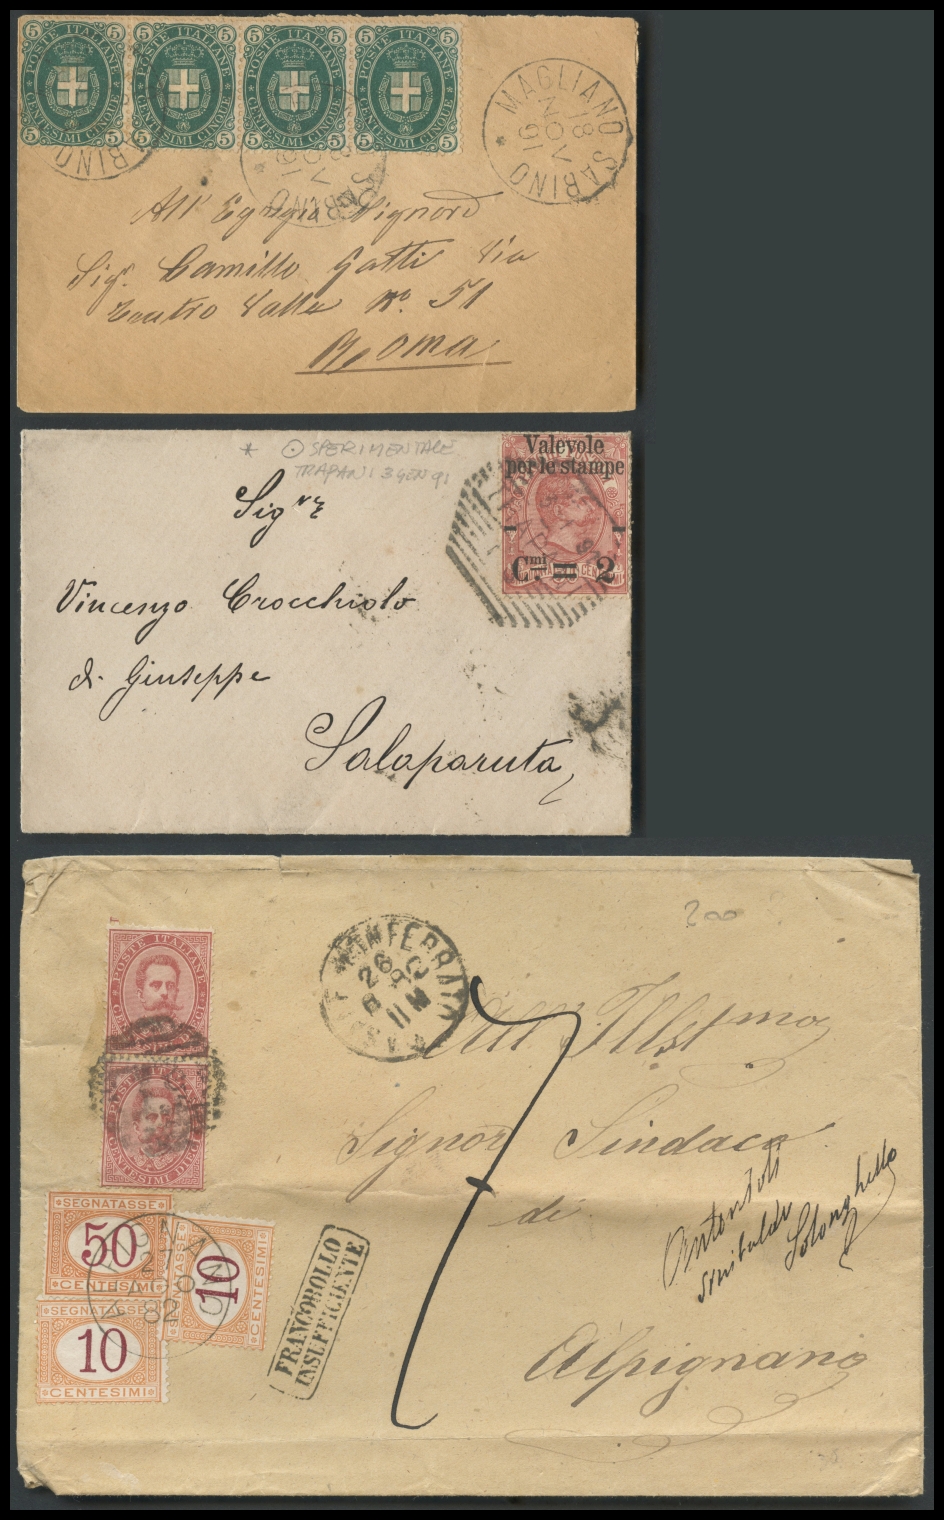 5 POSTE ITALIANE 5
5 CENTESIMI CINQUE 5
5 POSTE ITALIANE 5
5 CENTESIMI CINQUE 5
5 POSTE ITALIANE 5
5 CENTESIMI CINQUE 5
5 POSTE ITALIANE 5
5 CENTESIMI CINQUE 5
MAGLIANO SABINO
18
NOV
91
All' Egregio Signore
Sig.r Camillo Gatti Via
Teatro Valle No. 51
Roma
* SPERIMENTALE
TRAPANI 3 GEN 91
Valevole
per le stampe
Cmi. = 2
Sig.re
Vincenzo Crocchiolo
di Giuseppe
Salaparuta
200
POSTE ITALIANE
POSTE ITALIANE
CENTESIMI DIECI
MONFERRATO
26
11 M
7
All' Illstmo
Signor Sindaco
di
Alpignano
Solonghello
SEGNATASSE
50
CENTESIMI
SEGNATASSE
10
CENTESIMI
SEGNATASSE
10
CENTESIMI
ALPIGNANO
27
AGO
82
FRANCOBOLLO
INSUFFICIENTE